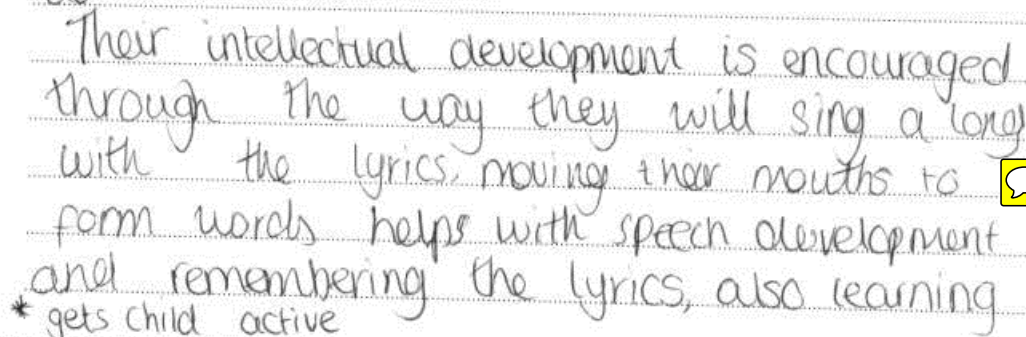 Their intellectual development is encouraged
through the way they will sing a long
with the lyrics, moving their mouths to
form words helps with speech development
and remembering the lyrics, also learning
* gets child active